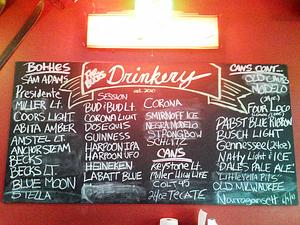 Bottles
SAM ADAMS
Presidente
MILLER LT.
COORS LIGHT
ABITA AMBER
AMSTEL LT.
ANCHOR STEAM
BECKS
BECKS LT.
BLUE MOON
STELLA
Drinkery
est. 2010
SESSION
BUD & BUD LT.
CORONA LIGHT
DOS EQUIS
GUINNESS
HARPOON IPA
HARPOON UFO
HEINEKEN
LABATT BLUE
CORONA
SMIRNOFF ICE
NEGRA MODELO
STRONGBOW
SCHLITZ
CANS
Keystone Lt.
Miller HIGH LIFE
COLT 45
24oz TECATE
CANS CONT.
MODELO
FOUR LOCO
PABST BLUE RIBBON
BUSCH LIGHT
Gennessee (24oz)
Natty Light & ICE
DALES PALE ALE
OLD MILWAUKEE
Narragansett